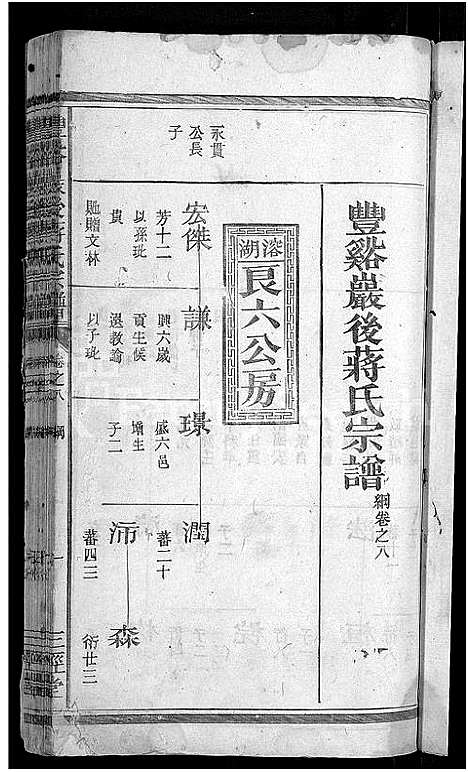 豐谿巖後蔣氏宗譜 綱卷之八
溶湖
艮六公房
永貫
公長
子
宏傑
芳十二
以孫玭
貴
貤贈文林
謙
興六歲
貢生候
選教諭
以子玭
璟
盛六邑
增生
子二
潤
蕃二十
沛
蕃四三
森
衍廿三
卷之八
綱
一
三徑堂